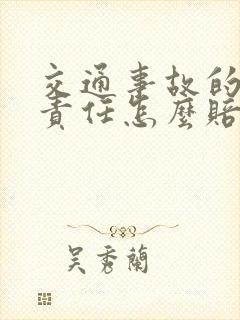 交通事故的
責任怎麼賠
吳秀蘭